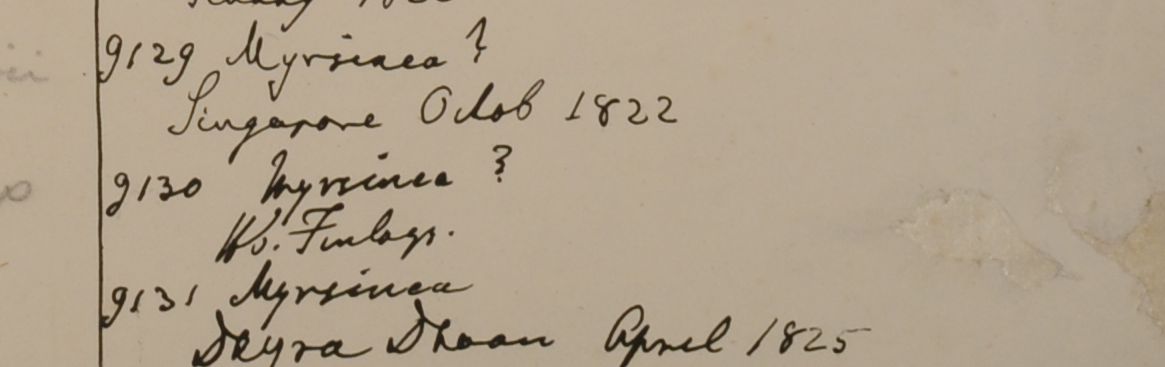 9129 Myrsinea ?
Singapore Octob 1822
9130 Myrsinea ?
Hb. Finlays.
9131 Myrsinea
Deyra Dhoon April 1825